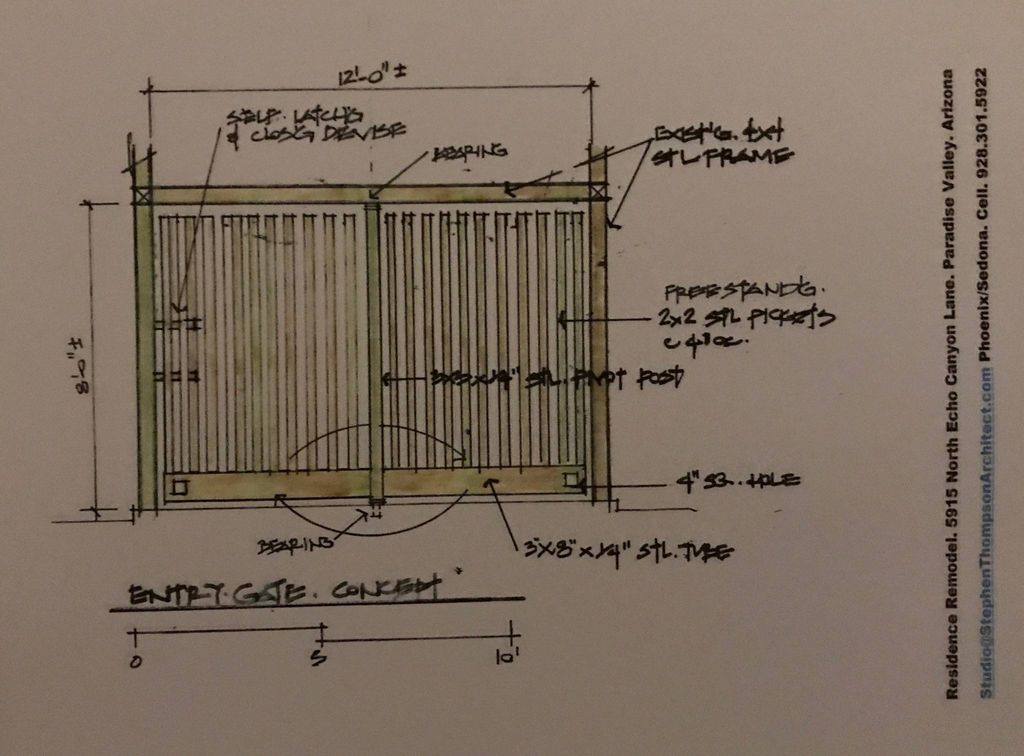 12'-0" ±
SELF. LATCH'G
& CLOS'G DEVISE
BEARING
EXIST'G. 4x4
STL FRAME
8'-0" ±
FREESTAND'G.
2x2 STL PICKETS
C 4" OC.
3x3 x 1/4" STL. PIVOT POST
4" SQ. HOLE
BEARING
3"x8"x1/4" STL. TUBE
ENTRY. GATE. CONCEPT
0 5 10'
Residence Remodel. 5915 North Echo Canyon Lane. Paradise Valley. Arizona
Studio@StephenThompsonArchitect.com Phoenix/Sedona. Cell. 928.301.5922